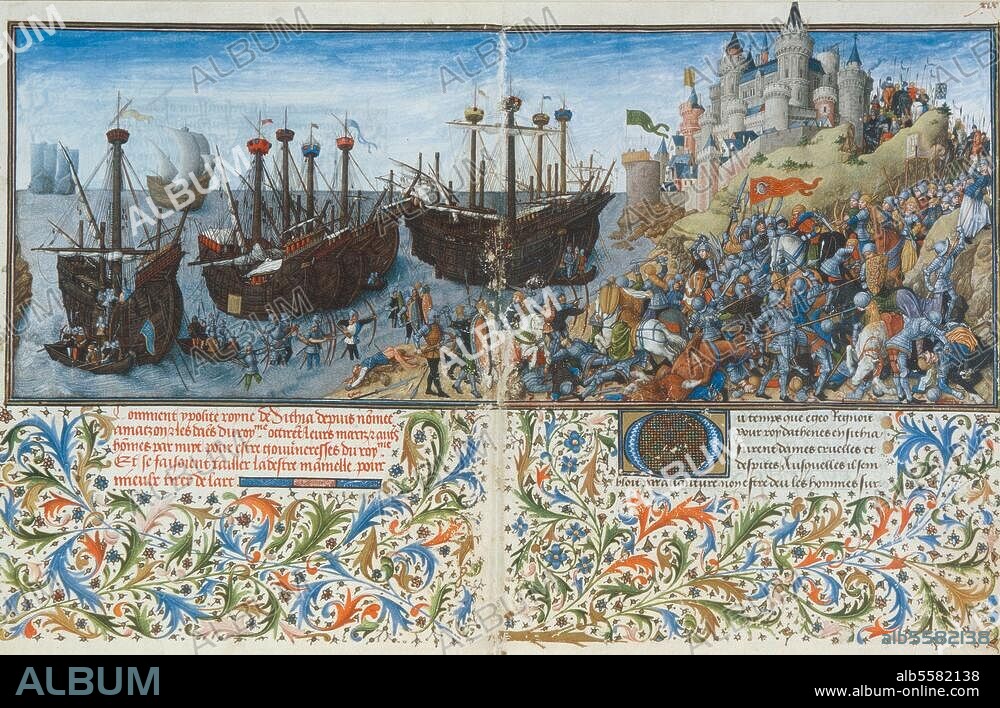 xix
Comment ypolite royne de Sithia depuis nōmee
amazon⁊ les dāes du roy.me occiret leurs mariz ⁊ aut̄s
hōmes par nuyt pour estre gouuerneresses du roy.me
Et se faisoient tailler la destre mamelle pour
mieulx tirer de lart
u temps que egeo Regnoit
pour roy dathenes en sithia
furent dames cruelles et
despites Ausquelles il sem
bloit non estre deu les hommes sur
ALBUM
alb5582138
ALBUM
alb5582138
www.album-online.com